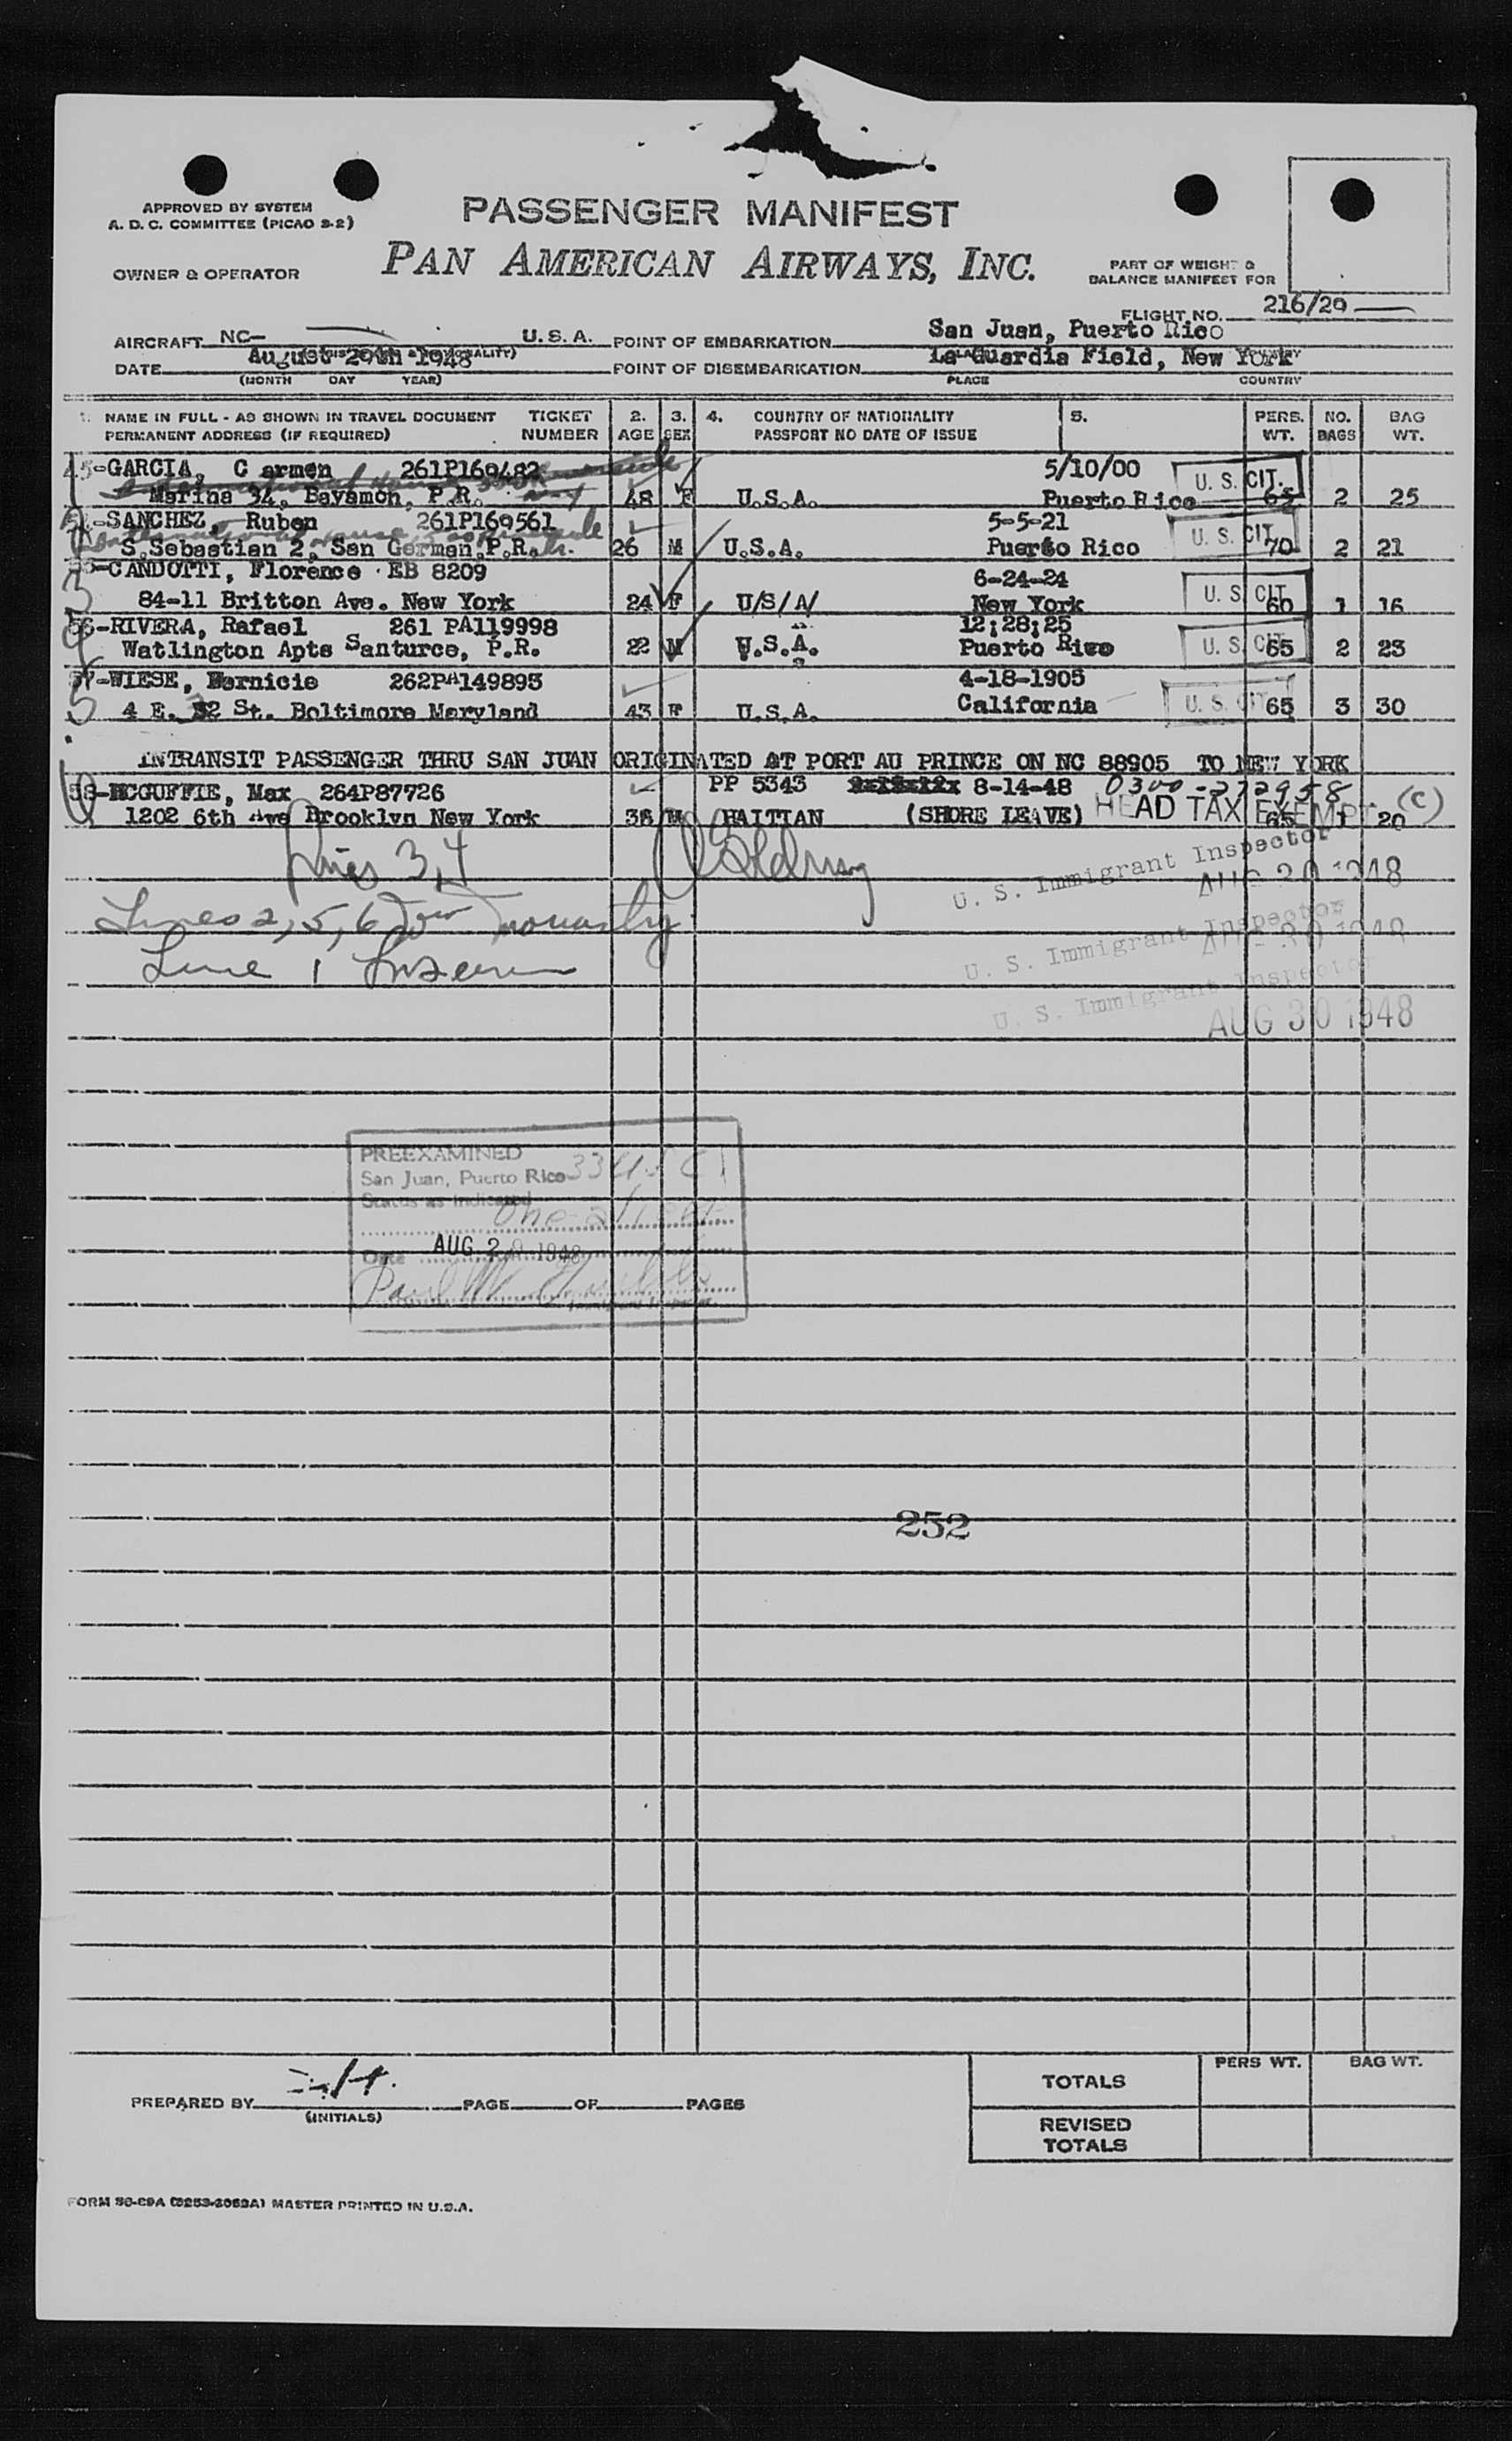 APPROVED BY SYSTEM
A. D. C. COMMITTEE (PICAO S-2)
PASSENGER MANIFEST
OWNER & OPERATOR
PAN AMERICAN AIRWAYS, INC.
PART OF WEIGHT &
BALANCE MANIFEST FOR
FLIGHT NO. 216/29
AIRCRAFT NC- U. S. A. POINT OF EMBARKATION San Juan, Puerto Rico
DATE August 29th 1948 POINT OF DISEMBARKATION La Guardia Field, New York
(MONTH DAY YEAR) PLACE COUNTRY
1. NAME IN FULL - AS SHOWN IN TRAVEL DOCUMENT TICKET 2. 3. 4. COUNTRY OF NATIONALITY 5. PERS. NO. BAG
PERMANENT ADDRESS (IF REQUIRED) NUMBER AGE SEX PASSPORT NO DATE OF ISSUE WT. BAGS WT.
-GARCIA, C armen 261P169482 5/10/00 U. S. CIT.
Marina 34, Bayamon, P.R. 48 F U.S.A. Puerto Rico 65 2 25
-SANCHEZ, Ruben 261P169561 5-5-21 U. S. CIT
S.Sebastian 2, San German,P.R. 26 M U.S.A. Puerto Rico 70 2 21
3 -CANDOTTI, Florence EB 8209 6-24-24 U. S. CIT
84-11 Britton Ave. New York 24 F U/S/A/ New York 60 1 16
56-RIVERA, Rafael 261 PA119998 12;28;25
Watlington Apts Santurce, P.R. 22 M U.S.A. Puerto Rico U. S. CIT 65 2 23
57-WIESE, Bernicie 262PA149895 4-18-1905
5 4 E. 32 St. Boltimore Maryland 43 F U.S.A. California U. S. CIT 65 3 30
INTRANSIT PASSENGER THRU SAN JUAN ORIGINATED AT PORT AU PRINCE ON NC 88905 TO NEW YORK
58-MCGUFFIE, Max 264P87726 PP 5343 8-14-48 0300-272958 (C)
6 1202 6th Ave Brooklyn New York 38 M HAITIAN (SHORE LEAVE) HEAD TAX EXEMPT 65 1 20
Lines 3,4
U. S. Immigrant Inspector
AUG 30 1948
Lines 2, 5, 6
U. S. Immigrant Inspector
AUG 30 1948
Line 1
U. S. Immigrant Inspector
AUG 30 1948
PREEXAMINED
San Juan, Puerto Rico
Status as indicated
one alien
Date AUG 29 1948
Immigrant Inspector
252
PREPARED BY PAGE OF PAGES
(INITIALS)
PERS WT. BAG WT.
TOTALS
REVISED
TOTALS
MASTER PRINTED IN U.S.A.